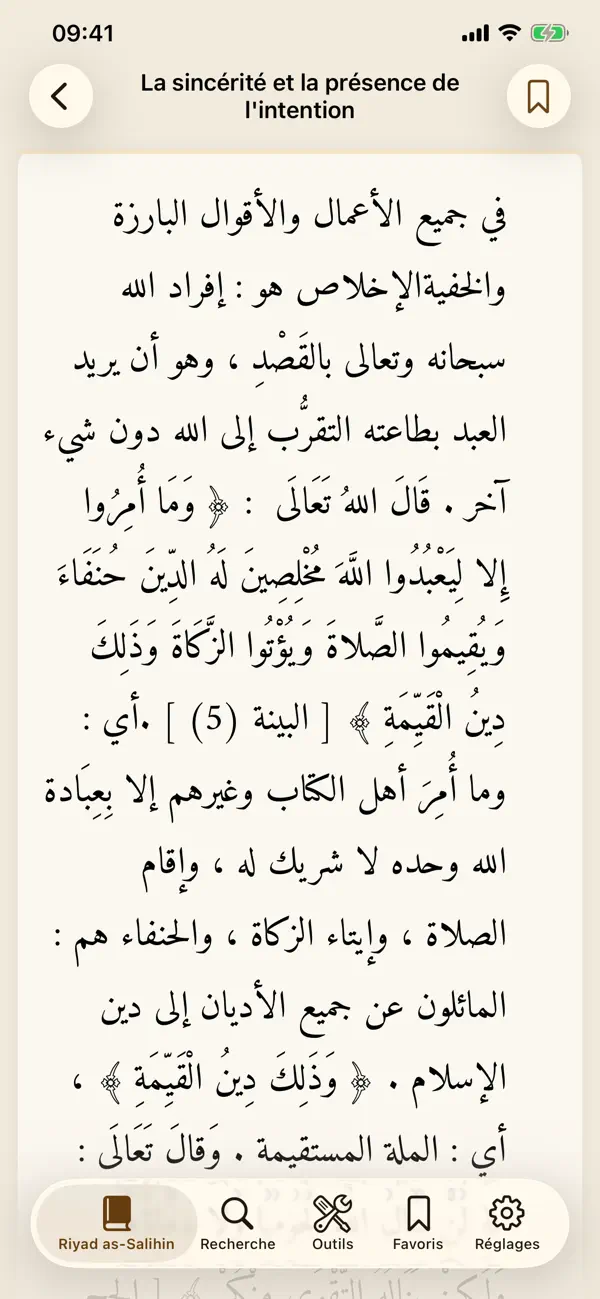 09:41
La sincérité et la présence de
l'intention
في جميع الأعمال والأقوال البارزة
والخفيةالإخلاص هو : إفراد الله
سبحانه وتعالى بالقَصْدِ ، وهو أن يريد
العبد بطاعته التقرُّب إلى الله دون شيء
آخر . قَالَ اللهُ تَعَالَى : ﴿ وَمَا أُمِرُوا
إِلا لِيَعْبُدُوا اللَّهَ مُخْلِصِينَ لَهُ الدِّينَ حُنَفَاءَ
وَيُقِيمُوا الصَّلاةَ وَيُؤْتُوا الزَّكَاةَ وَذَلِكَ
دِينُ الْقَيِّمَةِ ﴾ [ البينة (5) ] .أي :
وما أُمِرَ أهل الكتاب وغيرهم إلا بِعِبَادة
الله وحده لا شريك له ، وإقام
الصلاة ، وإيتاء الزكاة ، والحنفاء هم :
المائلون عن جميع الأديان إلى دين
الإسلام . ﴿ وَذَلِكَ دِينُ الْقَيِّمَةِ ﴾ ،
أي : الملة المستقيمة . وَقالَ تَعَالَى :
Riyad as-Salihin
Recherche
Outils
Favoris
Réglages